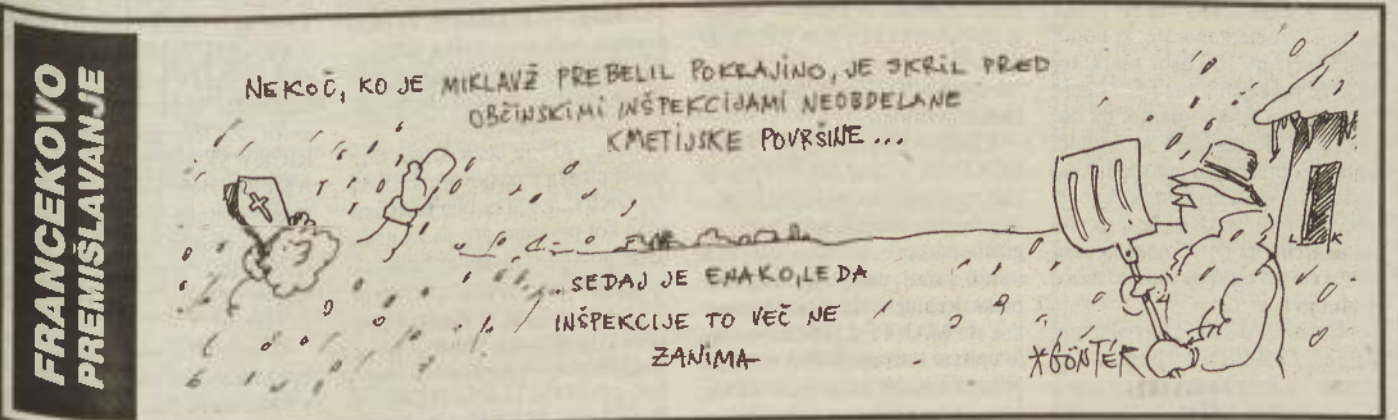 FRANCEKOVO
PREMIŠLAVANJE
NEKOČ, KO JE MIKLAVŽ PREBELIL POKRAJINO, JE SKRIL PRED
OBČINSKIMI INŠPEKCIJAMI NEOBDELANE
KMETIJSKE POVRŠINE...
...SEDAJ JE ENAKO, LE DA
INŠPEKCIJE TO VEČ NE
ZANIMA
*GÖNTÉR